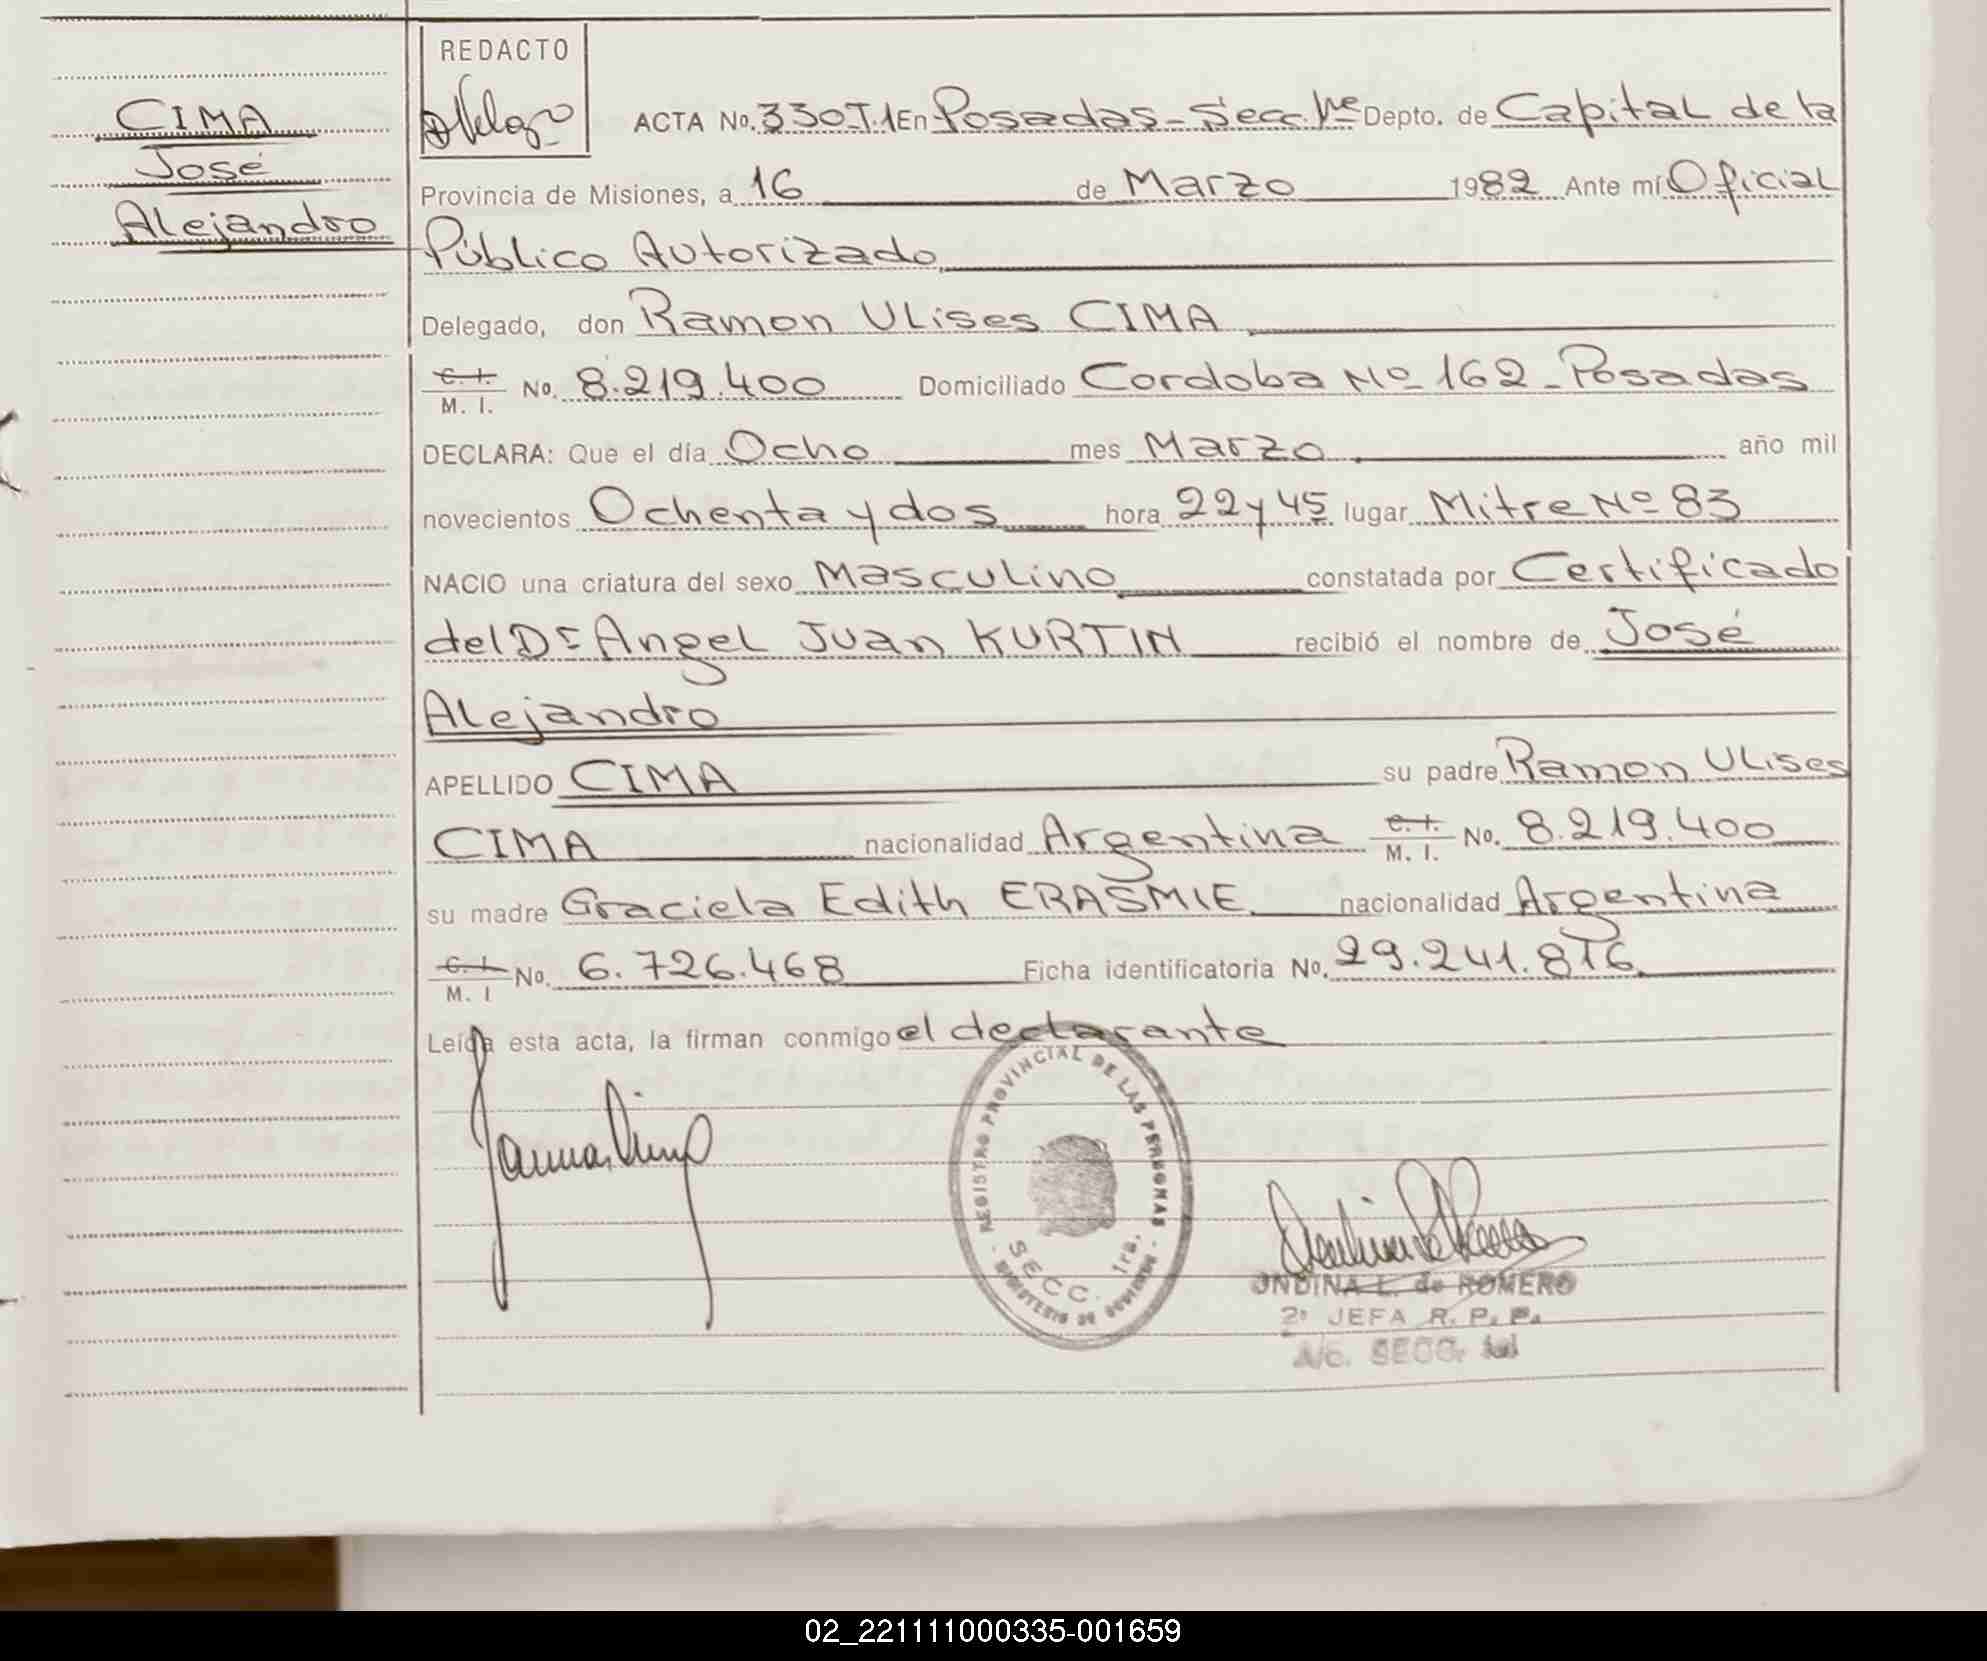 REDACTO
CIMA
José
Alejandro
ACTA No. 330 T.1 En Posadas - Secc. 1re Depto. de Capital de la
Provincia de Misiones, a 16 de Marzo 1982 Ante mí Oficial
Público Autorizado
Delegado, don Ramon Ulises CIMA
C. I. M. I. No. 8.219.400 Domiciliado Cordoba Nº 162 - Posadas
DECLARA: Que el día Ocho mes Marzo año mil
novecientos Ochenta y dos hora 22 y 45 lugar Mitre Nº 83
NACIO una criatura del sexo Masculino constatada por Certificado
del Dr Angel Juan KURTIN recibió el nombre de José
Alejandro
APELLIDO CIMA su padre Ramon Ulises
CIMA nacionalidad Argentina C. I. M. I. No. 8.219.400
su madre Graciela Edith ERASMIE nacionalidad Argentina
C. I. M. I No. 6.726.468 Ficha identificatoria No. 29.241.816
Leída esta acta, la firman conmigo el declarante
REGISTRO PROVINCIAL DE LAS PERSONAS
SECC. 1ra.
MINISTERIO DE GOBIERNO
ONDINA L. de ROMERO
2º JEFA R. P. P.
A/c. SECC. 1ra
02_221111000335-001659